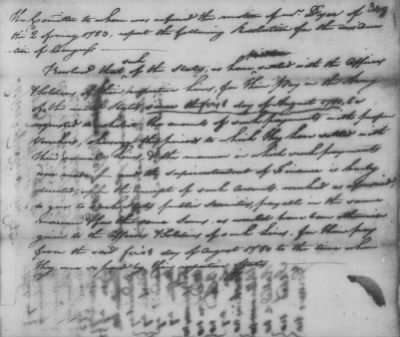 309
The Committee to whom was referred the motion of Mr. Dyer of
the 2 Jany 1783, report the following Resolution for the consider-
ation of Congress
Resolved that such of the States, as have settled with the Officers
& Soldiers of their respective lines, for their Pay in the Army
of the United States, since the first day of August 1780, be
requested to exhibit the accounts of such payments with proper
Vouchers, shewing the periods to which they have settled with
their several lines, & the manner in which such payments
were made; and the Superintendent of Finance is hereby
directed, upon the receipt of such accounts vouched as aforesaid,
to give to such States public securities, payable in the same
manner & for the same sums, as would have been otherwise
given to the Officers & Soldiers of such lines, for their pay
from the said first day of August 1780 to the time when
they were so paid by their respective States